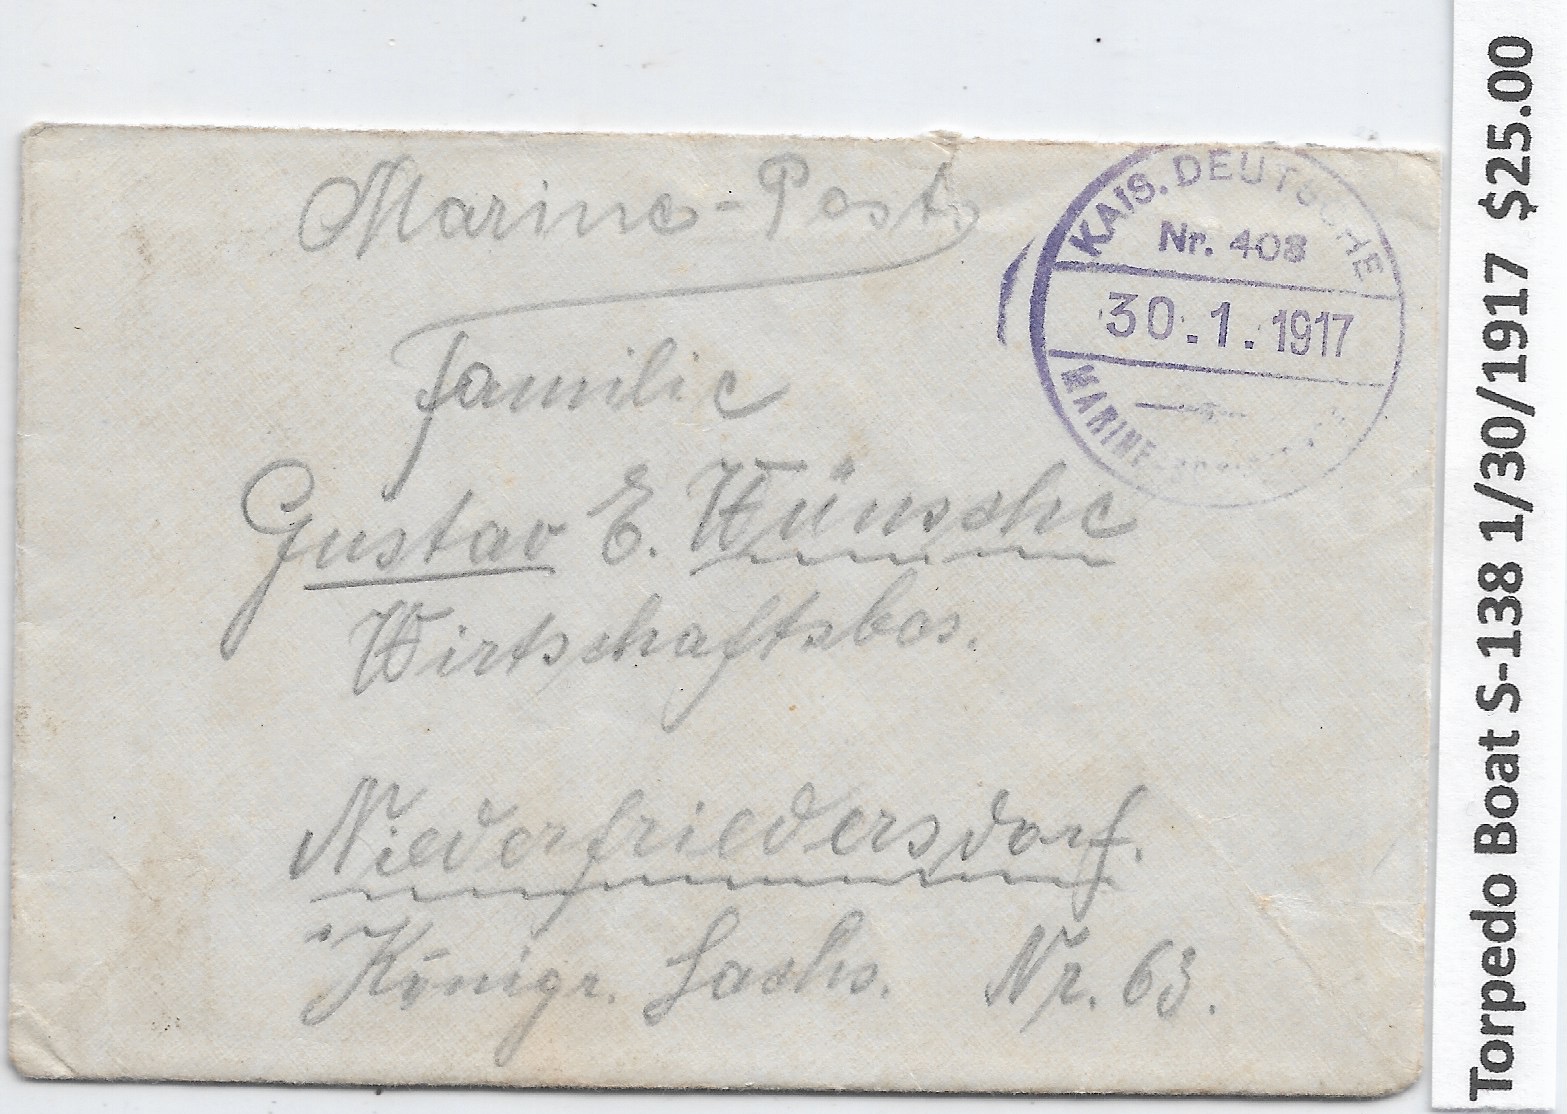 Marine-Post.
KAIS. DEUTSCHE
Nr. 408
30.1.1917
Familie
Gustav E. Wünsche
Wirtschaftsbes.
Niederfriedersdorf.
i. Königr. Sachs. Nr. 63.
Torpedo Boat S-138 1/30/1917 $25.00